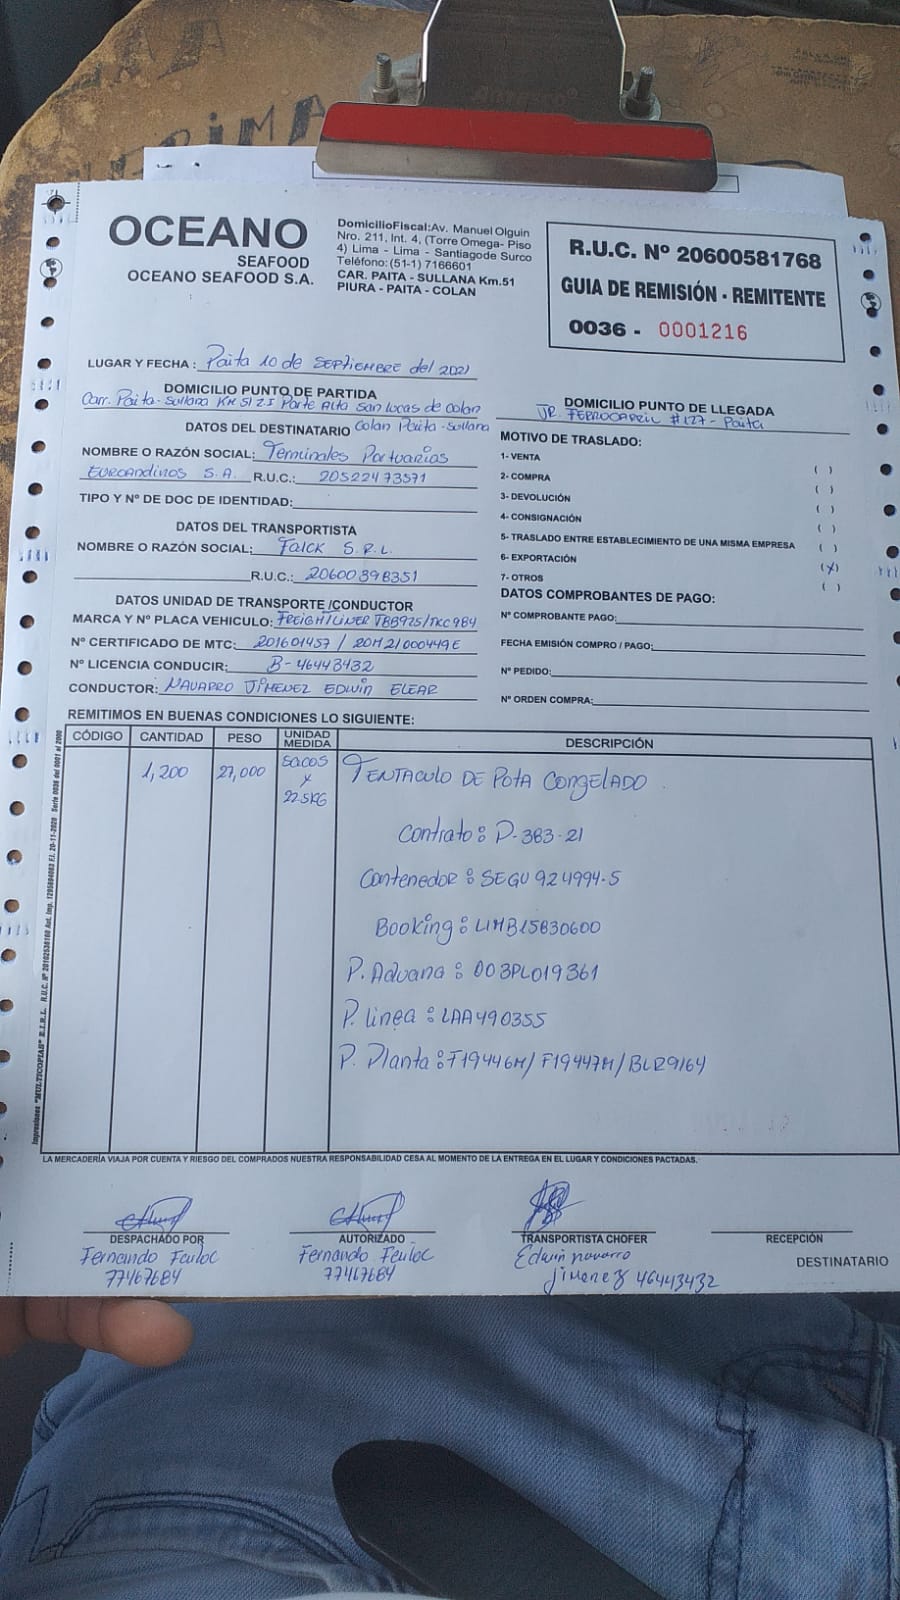 OCEANO
SEAFOOD
OCEANO SEAFOOD S.A.
DomicilioFiscal:Av. Manuel Olguin
Nro. 211, Int. 4, (Torre Omega- Piso
4) Lima - Lima - Santiagode Surco
Teléfono:(51-1) 7166601
CAR. PAITA - SULLANA Km.51
PIURA - PAITA - COLAN
R.U.C. Nº 20600581768
GUIA DE REMISIÓN - REMITENTE
0036 - 0001216
LUGAR Y FECHA : Paita 10 de SEPTIEMBRE del 2021
DOMICILIO PUNTO DE PARTIDA
Carr. Paita-Sullana KM 51 ZI Parte Alta San Lucas de Colan
Colan Paita-Sullana
DOMICILIO PUNTO DE LLEGADA
JR. FERROCARRIL #127 - Paita
DATOS DEL DESTINATARIO
NOMBRE O RAZÓN SOCIAL: Terminales Portuarios
EUROANDINOS S.A. R.U.C.: 20522473571
TIPO Y Nº DE DOC DE IDENTIDAD:
MOTIVO DE TRASLADO:
1- VENTA ( )
2- COMPRA ( )
3- DEVOLUCIÓN ( )
4- CONSIGNACIÓN ( )
5- TRASLADO ENTRE ESTABLECIMIENTO DE UNA MISMA EMPRESA ( )
6- EXPORTACIÓN (X)
7- OTROS ( )
DATOS DEL TRANSPORTISTA
NOMBRE O RAZÓN SOCIAL: Falck S.R.L.
R.U.C.: 20600398351
DATOS UNIDAD DE TRANSPORTE /CONDUCTOR
MARCA Y Nº PLACA VEHICULO: FREIGHTLINER T8B925/TKC984
Nº CERTIFICADO DE MTC: 201601457 / 20M21000449E
Nº LICENCIA CONDUCIR: B-46443432
CONDUCTOR: NAVARRO JIMENEZ EDWIN ELEAR
DATOS COMPROBANTES DE PAGO:
Nº COMPROBANTE PAGO:
FECHA EMISIÓN COMPRO / PAGO:
Nº PEDIDO:
Nº ORDEN COMPRA:
REMITIMOS EN BUENAS CONDICIONES LO SIGUIENTE:
CÓDIGO CANTIDAD PESO UNIDAD MEDIDA DESCRIPCIÓN
1,200 27,000 SACOS x 22.5KG TENTACULO DE POTA CONGELADO
Contrato : P-383-21
Contenedor : SEGU 924994-5
Booking : LIMB15830600
P. Aduana : 003PL019361
P. Linea : LAA490355
P. Planta : F19446M/ F19447M/ BLR9164
LA MERCADERÍA VIAJA POR CUENTA Y RIESGO DEL COMPRADOS NUESTRA RESPONSABILIDAD CESA AL MOMENTO DE LA ENTREGA EN EL LUGAR Y CONDICIONES PACTADAS.
DESPACHADO POR
Fernando Feuloc
77467684
AUTORIZADO
Fernando Feuloc
77467684
TRANSPORTISTA CHOFER
Edwin navarro
Jimenez 46443432
RECEPCIÓN
DESTINATARIO